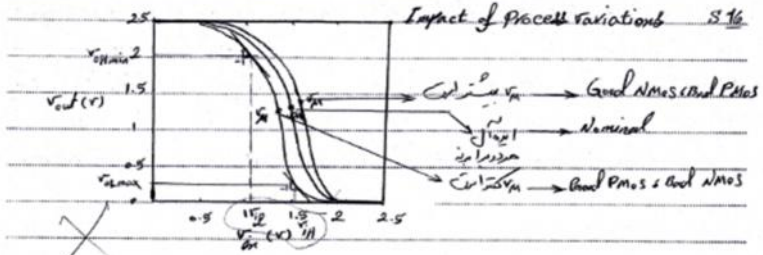 Impact of Process Variations S 16
2.5
V_OHmin 2
1.5
V_out (V)
1
0.5
V_OLmax
0.5 1 V_IL 1.5 V_IH 2 2.5
V_in (V)
V_M
V_M
V_M بیشتر است → Good NMOS & Bad PMOS
ایده‌آل → Nominal
هر دو برابرند
V_M کمتر است → Good PMOS & Bad NMOS